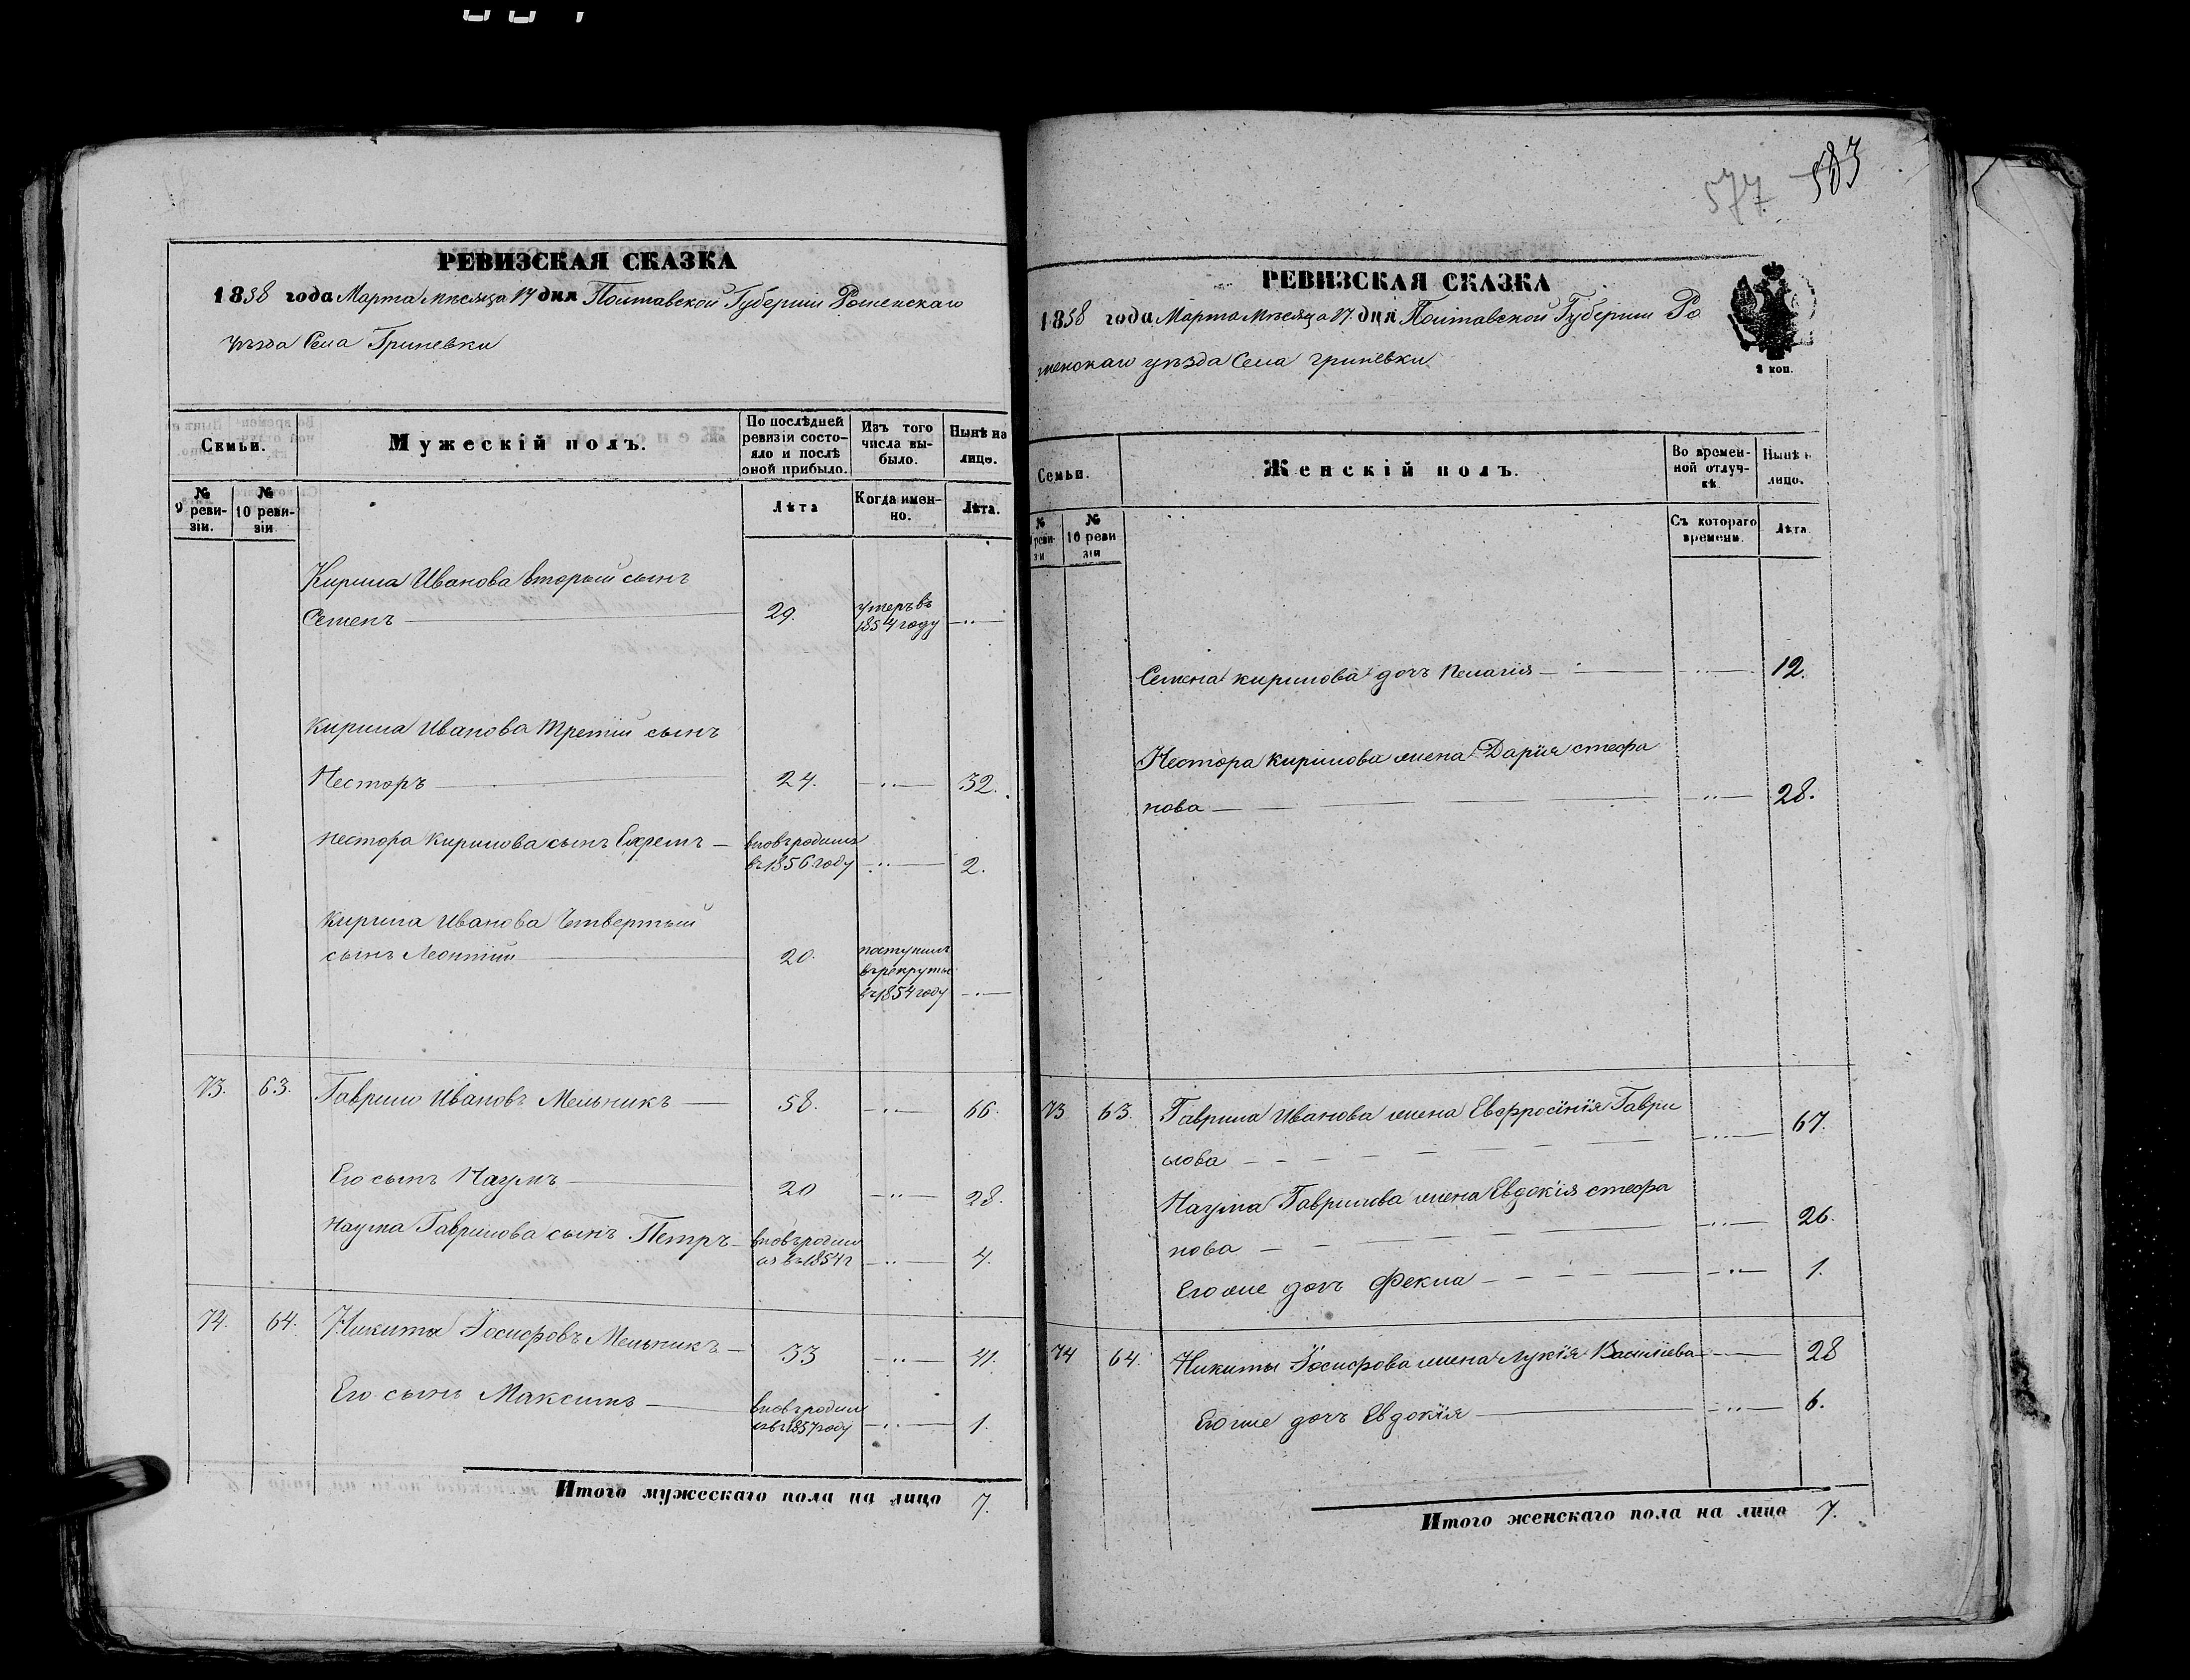 РЕВИЗСКАЯ СКАЗКА
1858 года Марта месяца 17 дня Полтавской Губернии Роменскаго
уѣзда Села Гриневки
Семьи.
Мужескій полъ.
По послѣдней ревизіи состояло и послѣ оной прибыло.
Изъ того числа выбыло.
Нынѣ на лицо.
№ 9 ревизіи.
№ 10 ревизіи
Лѣта
Когда именно.
Лѣта.
Кирила Иванова вторый сынъ
Семенъ 29. умеръ въ 1854 году
Кирила Иванова третій сынъ
Несторъ 24. 32.
Нестора Кирилова сынъ Ефремъ вновь родился въ 1856 году 2.
Кирила Иванова Четвертый
сынъ Леонтій 20. поступилъ въ рекруты въ 1854 году
73. 63. Гаврило Ивановъ Мельникъ 58. 66.
Его сынъ Наумъ 20 28.
Наума Гаврилова сынъ Петръ вновь родился въ 1854 г 4.
74. 64. Никита Іосифовъ Мельникъ 33 41.
Его сынъ Максимъ вновь родился въ 1857 году 1.
Итого мужескаго пола на лицо 7.
577 583
РЕВИЗСКАЯ СКАЗКА
1858 года Марта Месяца 17 дня Полтавской Губернии Ро
менскаго уѣзда Села Гриневки
2 коп.
Семьи.
Женскій полъ.
Во временной отлучкѣ.
Нынѣ н лицо.
№ реви зи
№ 10 реви зіи
Съ котораго времени.
Лѣта
Семена Кирилова дочь Пелагія 12.
Нестора Кирилова жена Дарія Стефа
нова 28.
73 63. Гаврила Иванова жена Евфросінія Гаври
лова 67.
Наума Гаврилова жена Евдокія Стефа
нова 26.
Его же дочь Фекла 1.
74 64. Никиты Іосифова жена Лукія Василіева 28
Его же дочь Евдокія 6.
Итого женскаго пола на лицо 7.